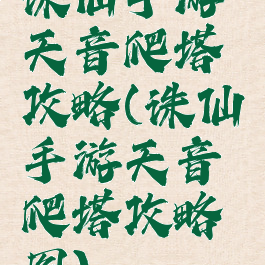 诛仙手游
天音爬塔
攻略(诛仙
手游天音
爬塔攻略
图)